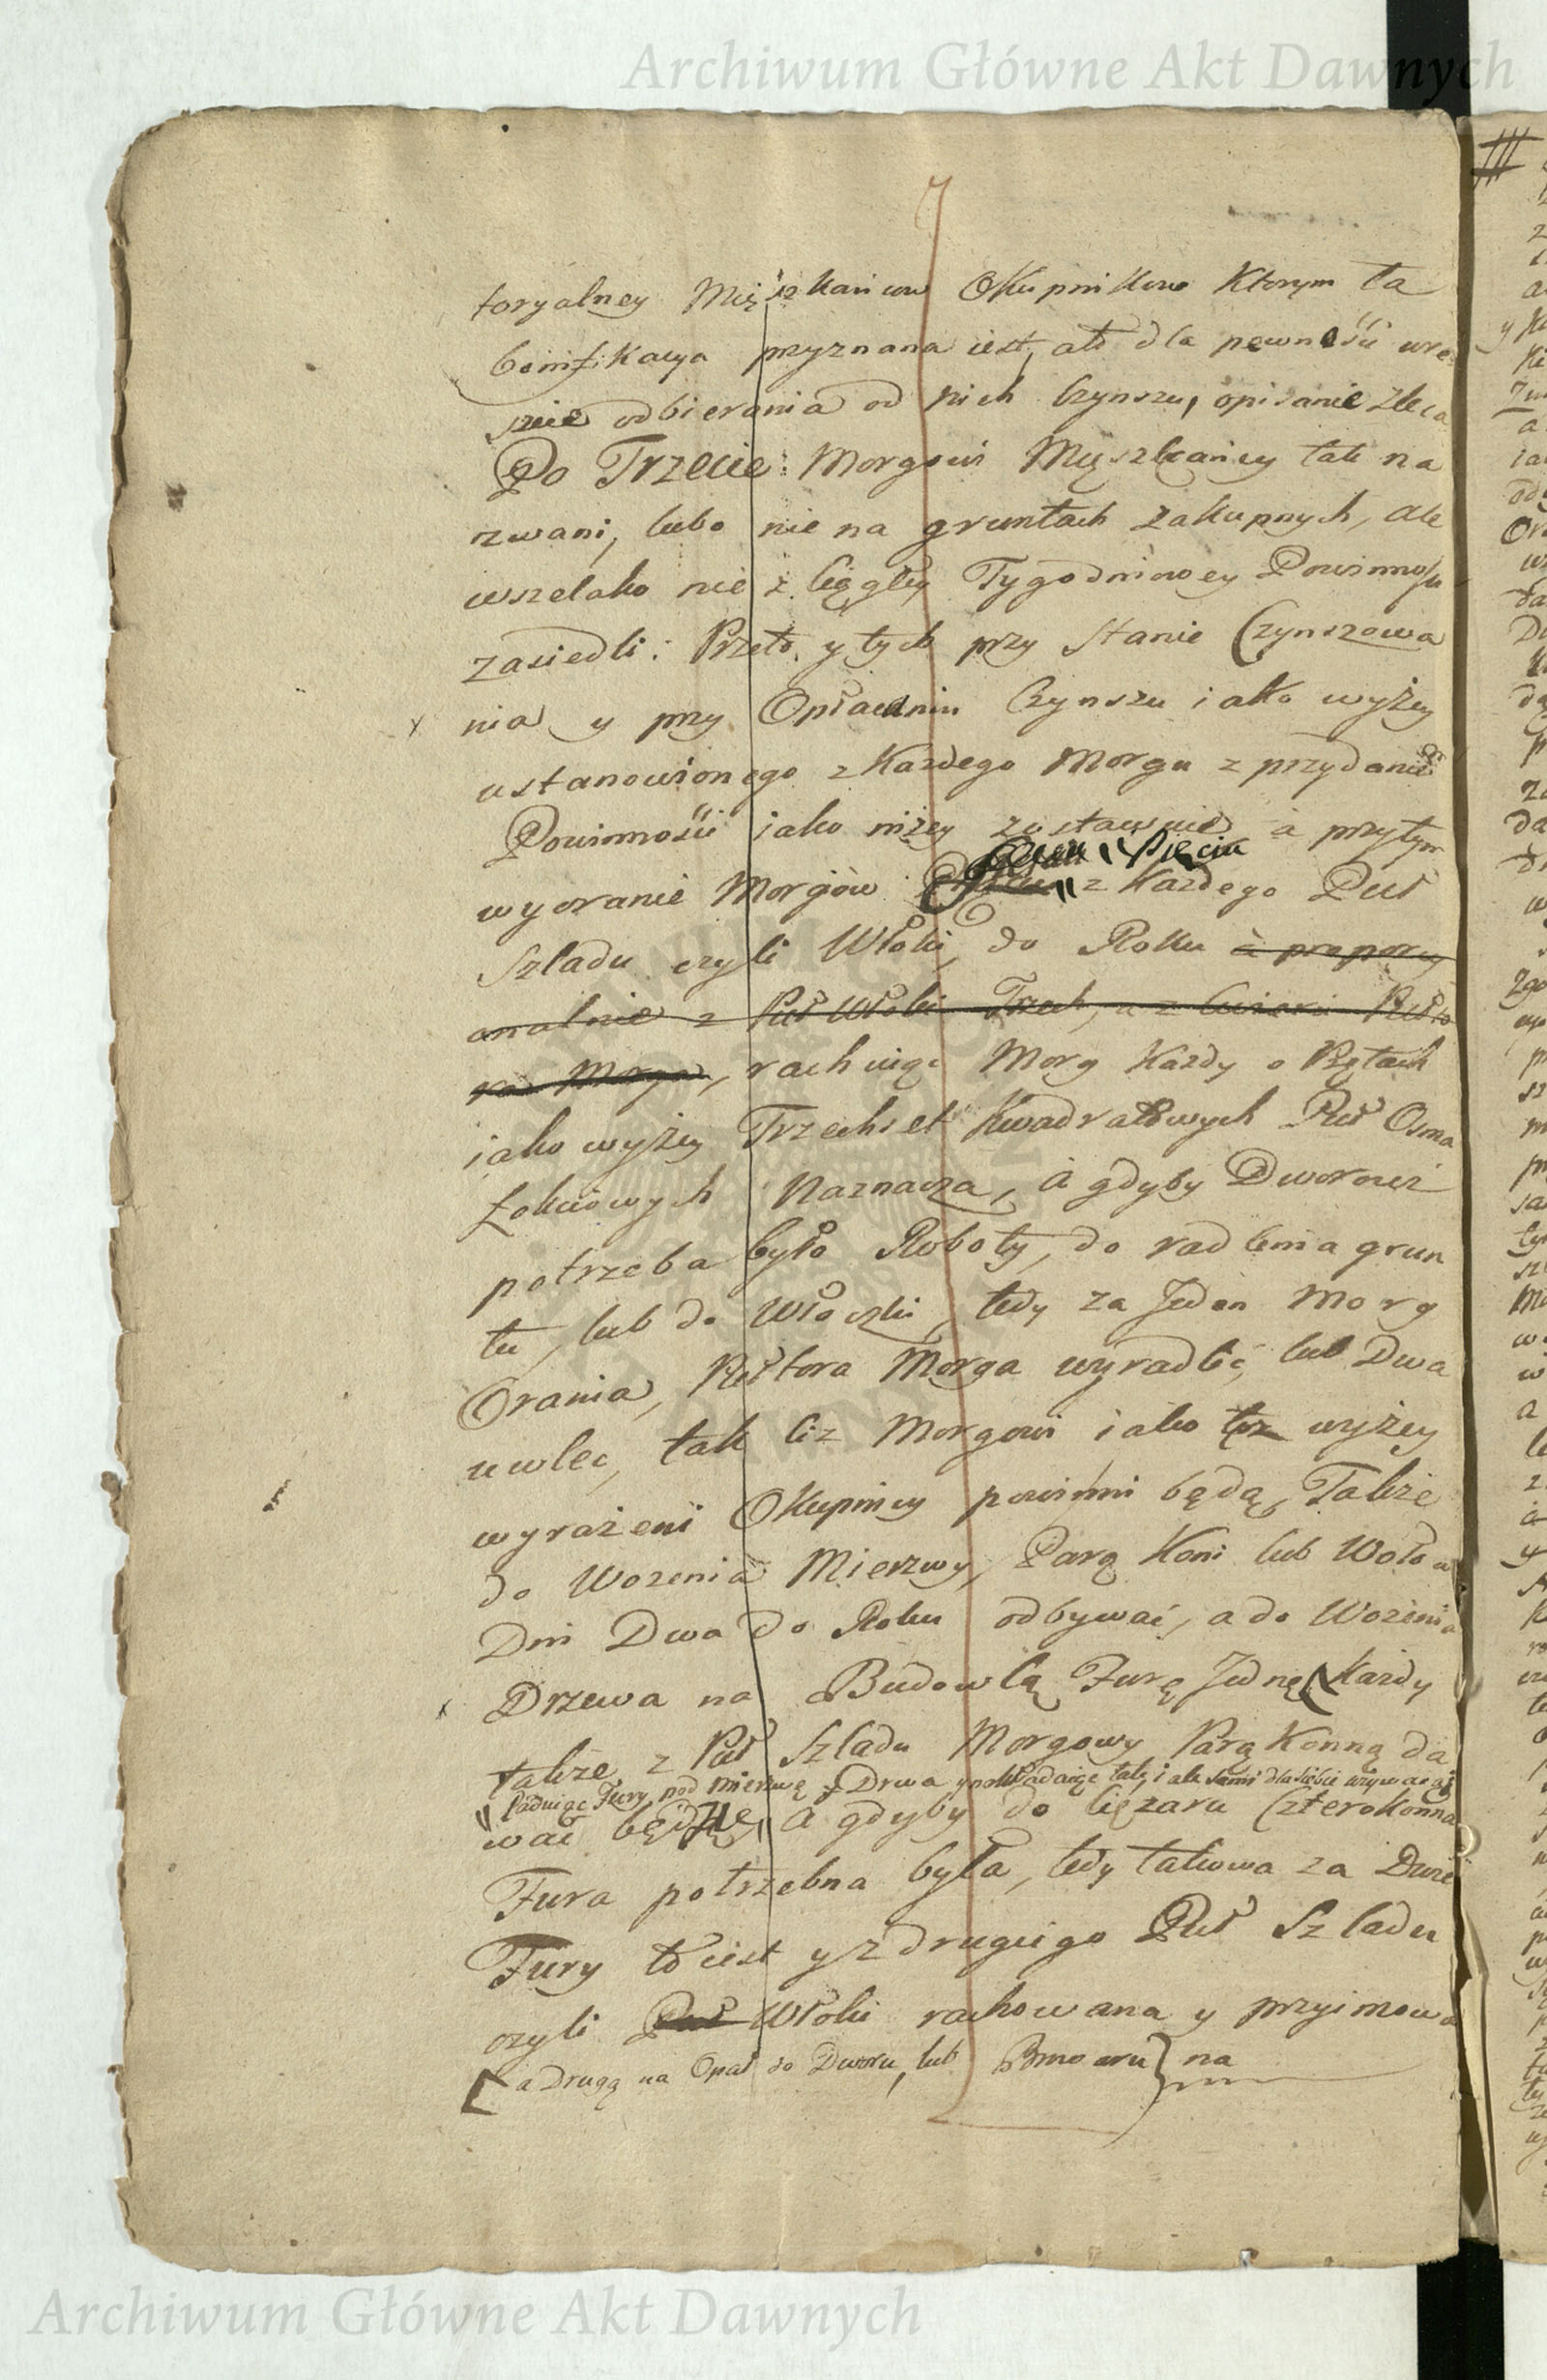 Archiwum Główne Akt Dawnych
toryalney Mięszkańcow Okupnikow ktorym ta
bonifikacya przyznana iest, ato dla pewności wre
szcie odbierania od nich Czynszu, opisanie zleca
Po Trzecie: Morgowi Mięszkańcy tak na
zwani, lubo nie na gruntach zakupnych, ale
wszelako nie z Ciągłey Tygodniowey Powinności
zasiedli: Przeto y tych przy Stanie Czynszowa
nia y przy Opłaceniu Czynszu iako wyżey
ustanowionego z każdego Morgu z przydaniem
Powinności iako niżey zostawuie a przytym
Pięciu
wyoranie Morgów z każdego Puł
Szladu czyli Włoki, do Roku a proporcy
onalnie z Puł Włoki Trzech, a z Cwierci Pułto
ra Morga, rachuiąc Morg każdy o Prętach
iako wyżey Trzechset Kwadratowych Puł Osma
Łokciowych Naznacza, a gdyby Dworowi
potrzeba było Roboty, do radlenia grun
tu, lub do Włoczki, tedy za Jeden Morg
Orania, Pułtora Morga wyradlić, lub Dwa
uwlec, tak ciż Morgowi iako też wyżey
wyrażeni Okupnicy powinni będą, Także
do Wożenia Mierzwy, Parą Koni lub Wołow
Dni Dwa do Roku odbywać, a do Wożenia
Drzewa na Budowlą Furę Jednę każdy
także z Puł Szladu Morgowy Parą Konną da
Ładuiąc Fury pod mierzwę y Drwa y nakładaiąc talę i ak sami dla siebie
wać będzie, a gdyby do Ciężaru Czterokonna
Fura potrzebna była, tedy takowa za Dwie
Fury to iest y z drugiego Puł Szladu
czyli Puł Włoki rachowana y przyimowa
a Drugą na Opał do Dworu, lub Browaru na
Archiwum Główne Akt Dawnych